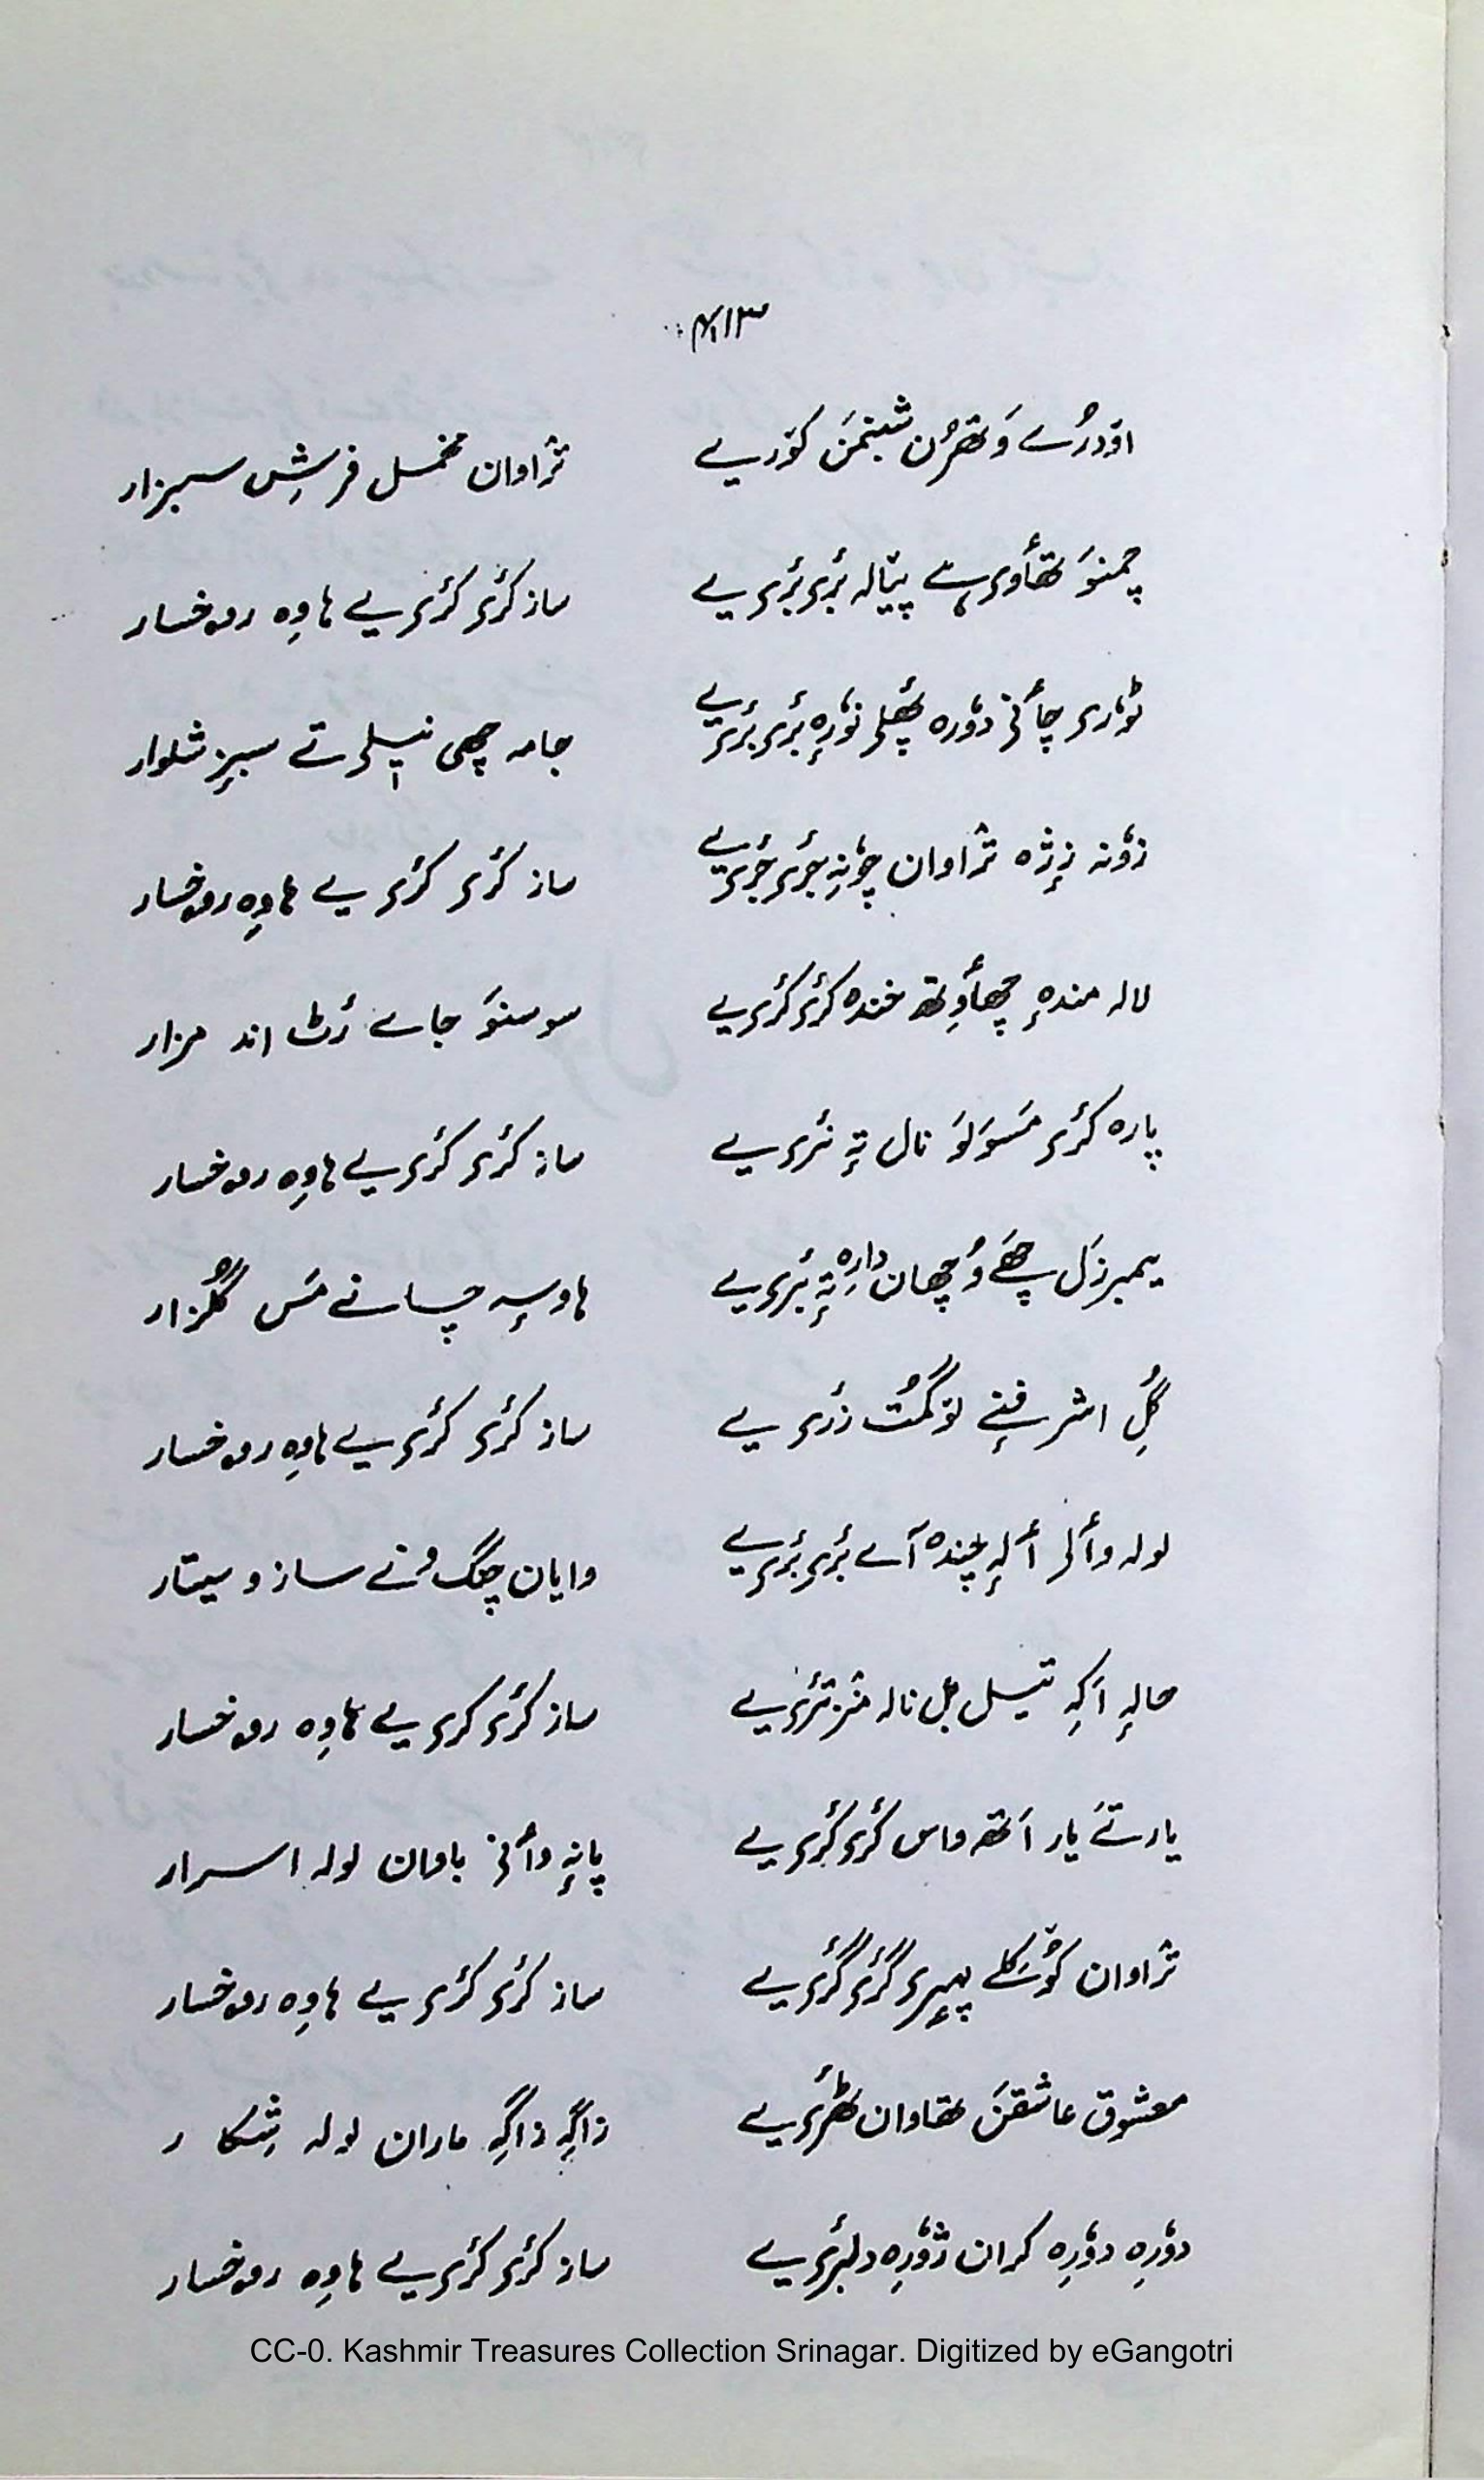 ۴۱۳
اۆدرُے وَتھرُن شبنمَن کۆریے ترٛاوان مخمل فرشِ سبزار
چمنوَ تھأوۍ پیالہ بٔرۍ بٔرۍ یے ساز کٔرۍ کٔرۍ یے ہاوِہ روخسار
ٹوٗرۍ چأنۍ دوٗرہ پھٔلۍ نوٗرہٕ بٔرۍ بٔرۍ یے جامہ چھی نیٖلۍ تے سبز شلوار
زوٗنہ زٕژہ ترٛاوان چوٗنہٕ جٔرۍ جٔرۍ یے ساز کٔرۍ کٔرۍ یے ہاوِہ روخسار
لالہ مندہٕ چھأوِتھ خندہ کٔرۍ کٔرۍ یے سوسنوَ جاے رٔٹ اند مزار
پارہ کٔرۍ مَسوَلوَ نال تہٕ نٔرۍ یے ساز کٔرۍ کٔرۍ یے ہاوِہ روخسار
یمبرزَل چھَے وُچھان دارِہ تہٕ بٔرۍ یے ہاوسہٕ چانے مَس گُلزار
گُلِ اشرفنےٕ لۆگمُت زٔرۍ یے ساز کٔرۍ کٔرۍ یے ہاوِہ روخسار
لولہ وألۍ ألہٕ چندہ آے بٔرۍ بٔرۍ یے وایان چنگ نے ساز و سیتار
حالہٕ اَکِہ تیل بل نالہ منٛز تٔرۍ یے ساز کٔرۍ کٔرۍ یے ہاوِہ روخسار
یارتَے یار اَتھہ واس کٔرۍ کٔرۍ یے پانہٕ وأنۍ باوان لولہ اسرار
ترٛاوان کۆشکلے پہٕرۍ گٔرۍ گٔرۍ یے ساز کٔرۍ کٔرۍ یے ہاوِہ روخسار
معشوق عاشقَن تھاوان ٹھٔرۍ یے زاگہِ زاگہِ ماران لولہ شِکار
دوٗرِہ دوٗرِہ کران ژوٗرِہ دلبٔرۍ یے ساز کٔرۍ کٔرۍ یے ہاوِہ روخسار
CC-0. Kashmir Treasures Collection Srinagar. Digitized by eGangotri